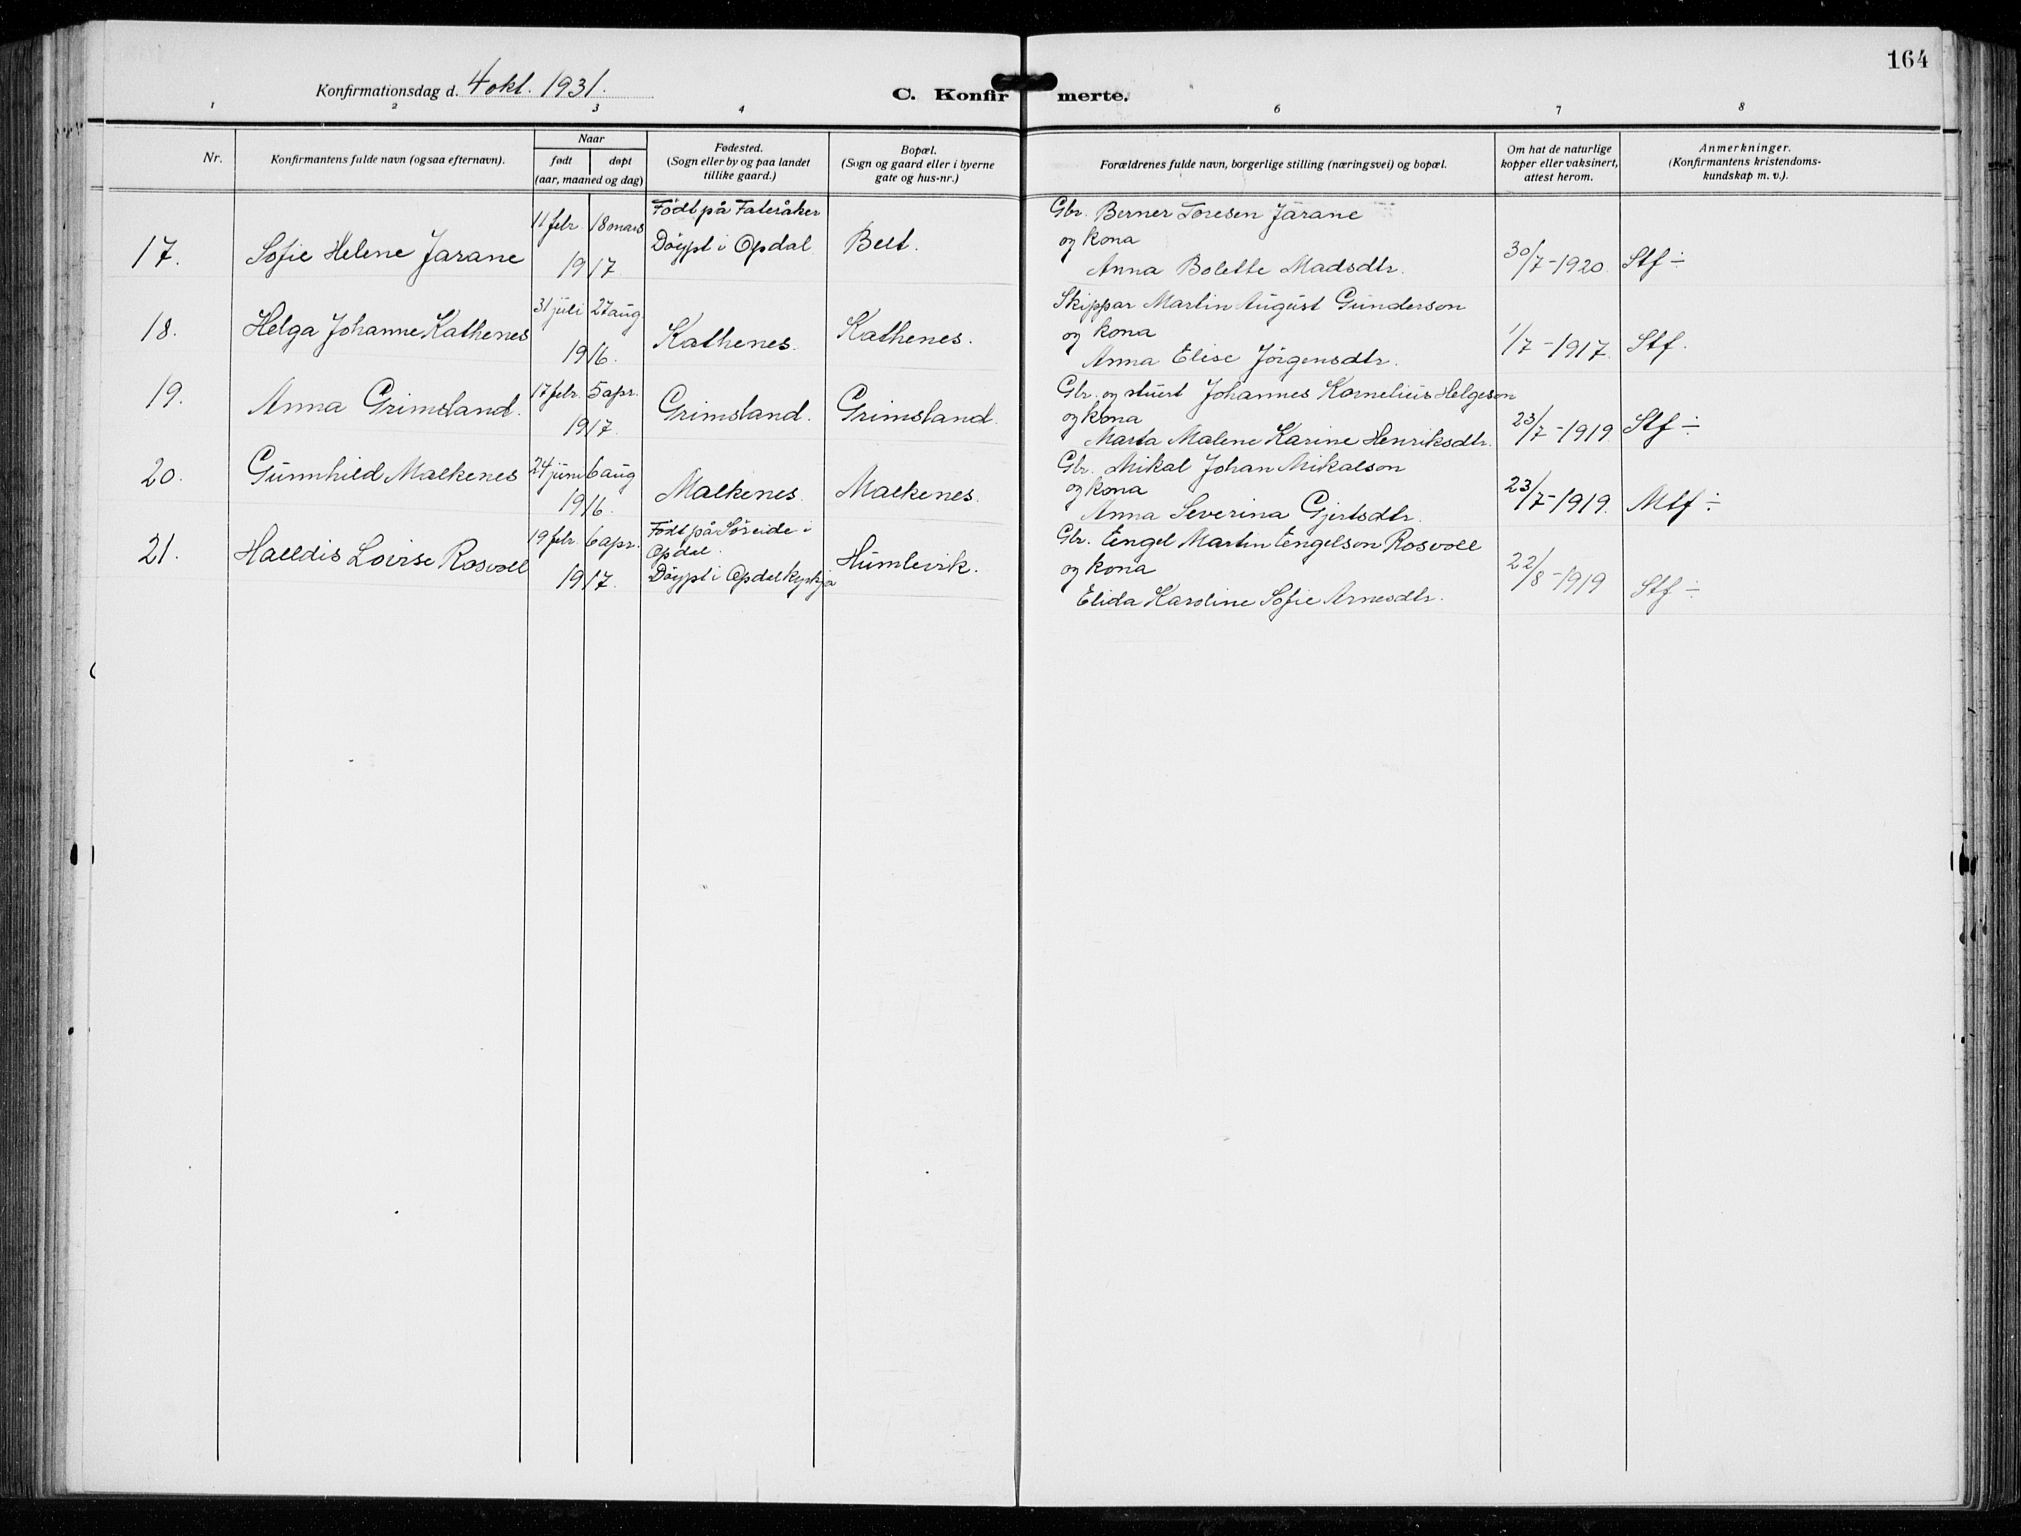 164
Konfirmationsdag d. 4 okt. 1931.
C. Konfirmerte.
1 2 3 4 6 7 8
Nr.
Konfirmantens fulde navn (ogsaa efternavn).
Naar
født døpt
(aar, maaned og dag)
Fødested.
(Sogn eller by og paa landet
tillike gaard.)
Bopæl.
(Sogn og gaard eller i byerne
gate og hus-nr.)
Forældrenes fulde navn, borgerlige stilling (næringsvei) og bopæl.
Om hat de naturlige
kopper eller vaksinert,
attest herom.
Anmerkninger.
(Konfirmantens kristendoms-
kundskap m. v.).
17. Sofie Helene Jarane
11 febr 18 mars
1917.
Født på
Døypt i Opdal
Belt.
Gbr. Berner Toresen Jarane
og kona
Anna Bolette Madsdtr.
30/7-1920. Stf ÷
18. Helga Johanne Kathenes
31 juli 27 aug
1916.
Kathenes.
Kathenes.
Skippar Martin August Gunderson
og kona
Anna Elise Jørgensdtr.
1/7-1917. Stf.
19. Anna Grimsland.
17 febr. 5 apr.
1917.
Grimsland.
Grimsland.
Gbr. og stuert Johannes Kornelius Helgeson
og kona
Marta Malene Karine Henriksdtr.
23/7-1919. Stf ÷
20. Gunnhild Malkenes
24 juni 6 aug
1916.
Malkenes.
Malkenes.
Gbr. Mikal Johan Mikalson
og kona
Anna Severina Gjertsdtr.
23/7-1919. Mtf ÷
21. Halldis Lovise Rosvoll
19 febr. 6 apr.
1917.
Født på Søreide i
Opdal.
Døypt i Opdal kyrkja
Humlevik.
Gbr. Engel Martin Engelson Rosvoll
og kona
Elida Karoline Sofie Arnesdtr.
22/8-1919 Stf ÷